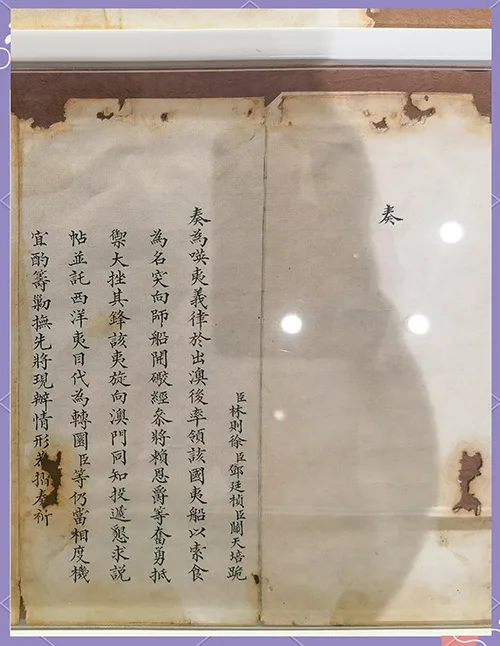 奏
臣林則徐臣鄧廷楨臣關天培跪
奏為𠸄夷義律於出澳後率領該國夷船以索食
為名突向師船開礮經參將賴恩爵等奮勇抵
禦大挫其鋒該夷旋向澳門同知投遞懇求說
帖並託西洋夷目代為轉圜臣等仍當相度機
宜酌籌勦撫先將現辦情形恭摺奏祈